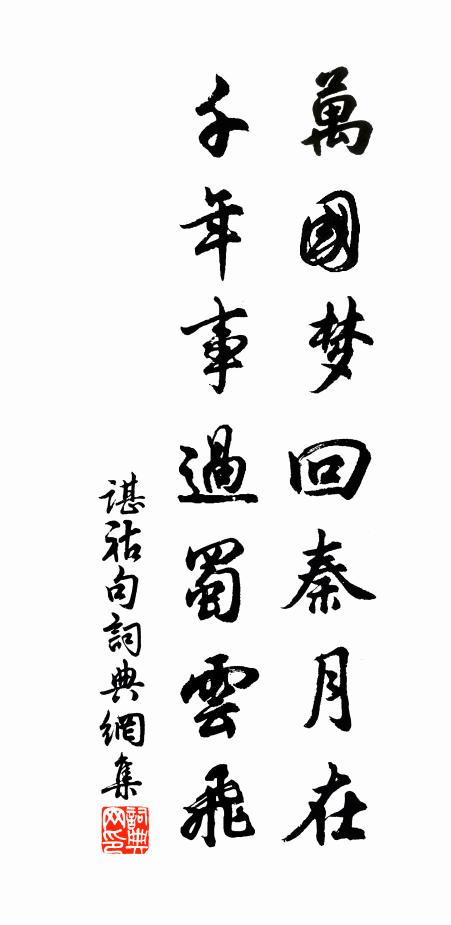 萬國梦回秦月在
千年事過蜀雲飛
谌祜句詞典網集
詞典网印